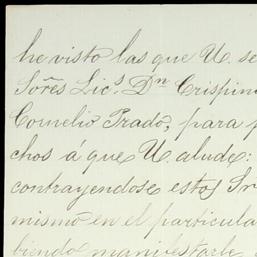 he visto las que U. se
Sores Lics. Dn Crispin
Cornelio Prado, para p
chos á que U. alude:
contrayendose estos Sr
mismo en el particula
biendo manifestarle